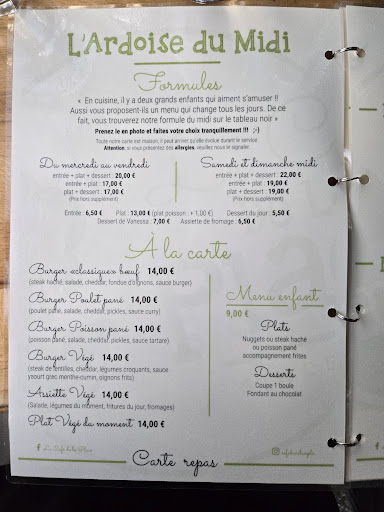 L'Ardoise du Midi
Formules
« En cuisine, il y a deux grands enfants qui aiment s'amuser !!
Aussi vous proposent-ils un menu qui change tous les jours. De ce
fait, vous trouverez notre formule du midi sur le tableau noir »
Prenez le en photo et faites votre choix tranquillement !!! ;-)
Toute notre carte est maison, il peut arriver qu'elle évolue durant le service.
Attention, si vous présentez des allergies, veuillez nous le signaler.
Du mercredi au vendredi
entrée + plat + dessert : 20,00 €
entrée + plat : 17,00 €
plat + dessert : 17,00 €
(Prix hors supplément)
Samedi et dimanche midi
entrée + plat + dessert : 22,00 €
entrée + plat : 19,00 €
plat + dessert : 19,00 €
(Prix hors supplément)
Entrée : 6,50 € Plat : 13,00 € (plat poisson : + 1,00 €) Dessert du jour : 5,50 €
Dessert de Vanessa : 7,00 € Assiette de fromage : 6,50 €
À la carte
Burger «classique» bœuf 14,00 €
(steak haché, salade, cheddar, fondue d'oignons, sauce burger)
Burger Poulet pané 14,00 €
(poulet pané, salade, cheddar, pickles, sauce curry)
Burger Poisson pané 14,00 €
(poisson pané, salade, cheddar, pickles, sauce tartare)
Burger Végé 14,00 €
(steak de lentilles, cheddar, légumes croquants, sauce
yaourt grec menthe-cumin, oignons frits)
Assiette Végé 14,00 €
(Salade, légumes du moment, fritures du jour, fromages)
Plat Végé du moment 14,00 €
Menu enfant
9,00 €
Plats
Nuggets ou steak haché
ou poisson pané
accompagnement frites
Desserts
Coupe 1 boule
Fondant au chocolat
Carte repas